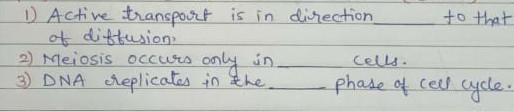 1) Active transport is in direction ______ to that
of diffusion.
2) Meiosis occurs only in ______ cells.
3) DNA replicates in the ______ phase of cell cycle.